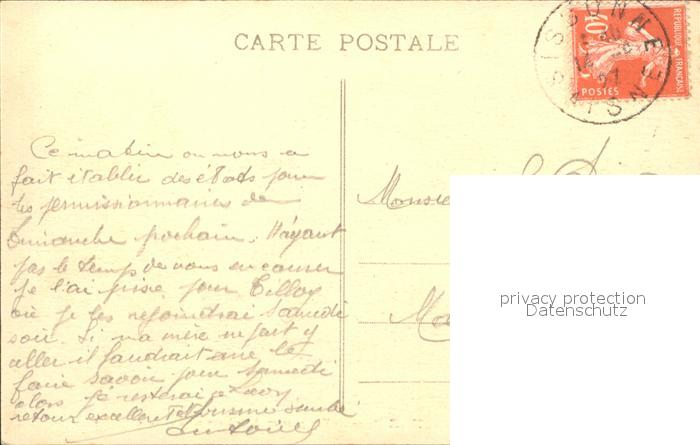 CARTE POSTALE
SISSONNE
AISNE
REPUBLIQUE FRANÇAISE
40c
POSTES
Ce matin on nous a
fait établir des états pour
les permissionnaires de
Dimanche prochain. N'ayant
pas le temps de vous en causer
je l'ai prise pour Tilloy
où je les rejoindrai samedi
soir. Si ma mère ne peut y
aller il faudrait me le
faire savoir pour samedi
alors je resterai
retour excellent
Monsieur
privacy protection
Datenschutz